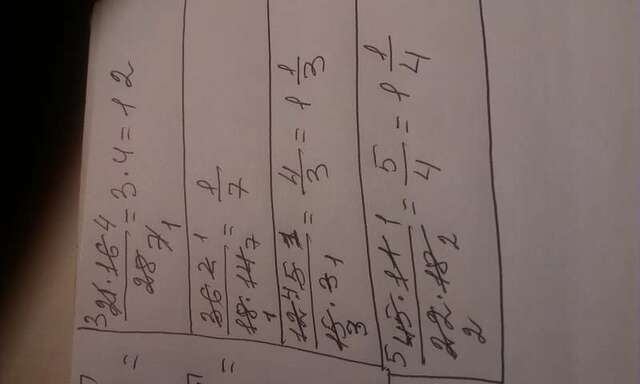 3 21·16 4 / 28 7 1 = 3·4 = 12
36·2 1 / 18·14 7 1 = 1/7
12 4·5 1 / 15·3 1 3 = 4/3 = 1 1/3
5 45·11 1 / 22·18 2 2 = 5/4 = 1 1/4
=
=